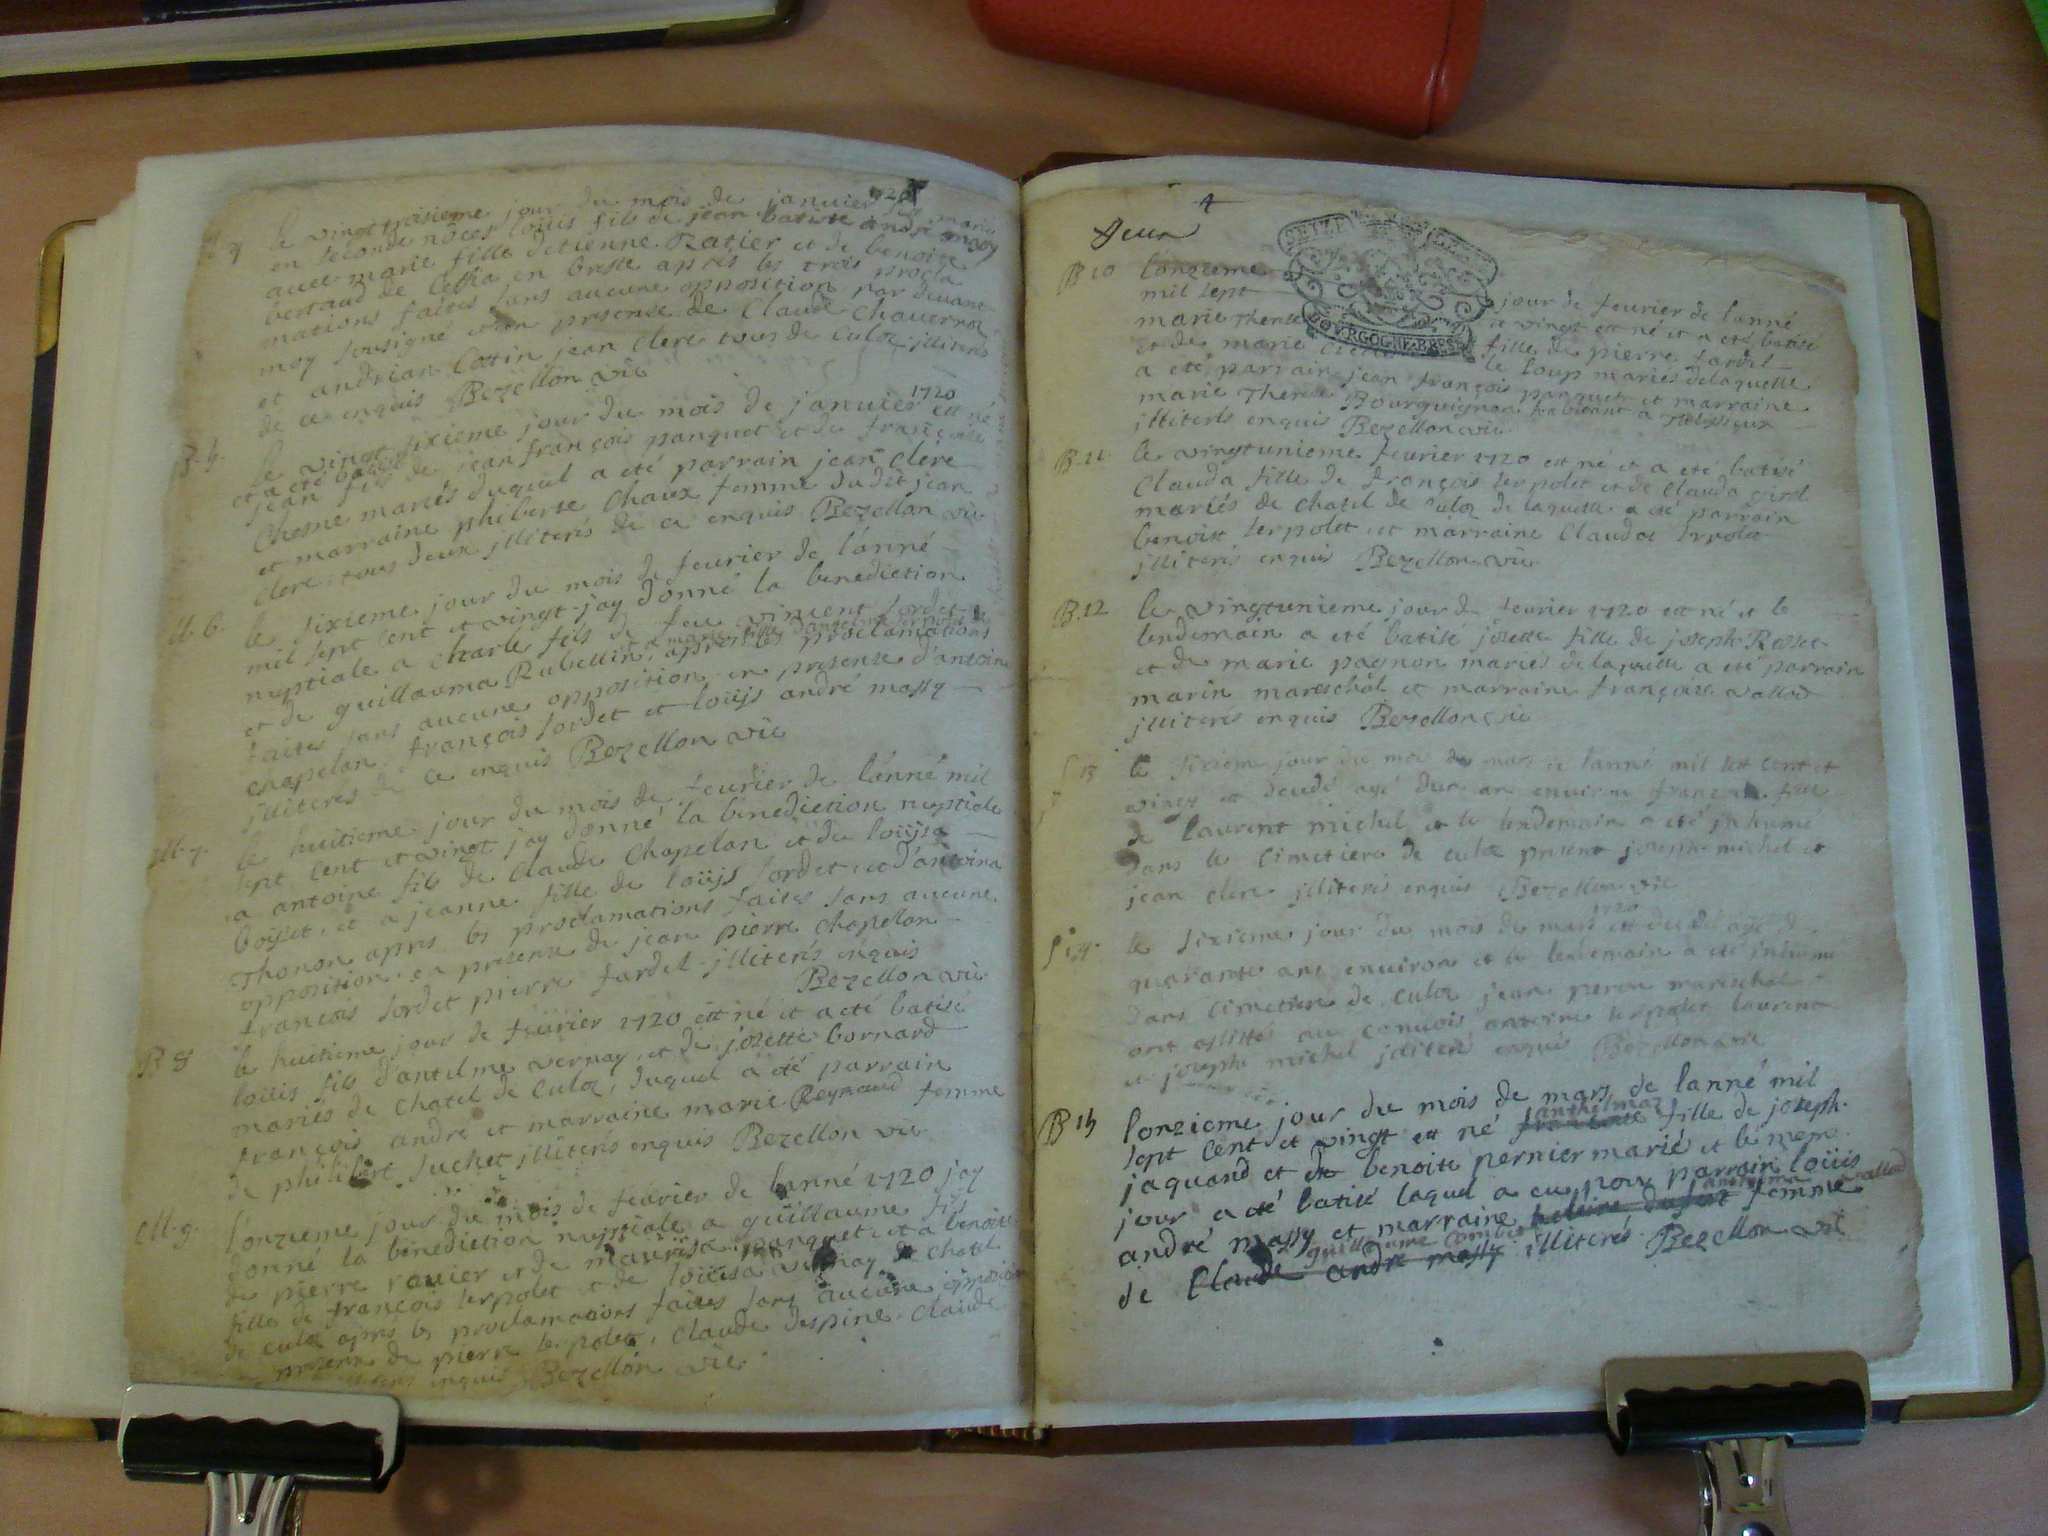 1720
le vingt troisieme jour du mois de januier
en seconde nôces loüis fils de jean batiste andré massy
auec marie fille d'etienne Ratier et de benoite
bertaud de en bresse apres les trois procla
mations faites sans aucune opposition par deuant
moy sousigné et en presense de Claude Chauerrot
et andrian Cottin jean clerc tous de Culoz illiterés
de ce enquis Bezellon vic
1720
B. 5. le vingt sixieme jour du mois de januier est né
et a été batisé
jean fils de jean françois panquet et de françoise
Chesne mariés duquel a eté parrain jean clerc
et marraine philiberte Chaux femme dudit jean
clerc, tous deux jlliterés de ce enquis Bezellon vic
M. 6. le sixieme jour du mois de feurier de l'anné
mil sept cent et vingt jay donné la benediction
nuptiale a charle fils de feu vincent sordet
et de guillauma Rubellin, apres les proclamations
faites sans aucune opposition en presense d'antoine
chapelon françois sordet et loüis andré massy
jlliterés de ce enquis Bezellon vic
M. 7. le huitieme jour du mois de féurier de l'anné mil
sept cent et vingt jay donné la benediction nuptiale
a antoine fils de Claude Chapelon et de loüisa
boisset, et a jeanne fille de loüis sordet, et d'antoina
Thonon apres les proclamations faites sans aucune
opposition en presense de jean pierre chapelon
françois sordet pierre fardel jlliterés enquis
Bezellon vic
B 8 le huitieme jour de féurier 1720 est né et a eté batisé
loüis fils d'antelme vernay, et de jozette bornard
mariés de Chatel de Culoz, duquel a eté parrain
françois andré et marraine marie Reynaud femme
de philibert suchet jlliterés enquis Bezellon vic
M. 9. l'onzieme jour du mois de féurier de lanné 1720 jay
donné la benediction nuptiale a guillaume fils
de pierre rauier et de panquet, et a benoite
fille de françois serpolet et de loüisa vernay de Chatel
de culoz apres les proclamations faites sans aucune opposition
presens de pierre serpolet, Claude despine Claude
enquis Bezellon vic
4
deux
B 10 lonzieme jour de feurier de lanné
mil sept et vingt est né et a eté batisé
marie Therese fille de pierre fardel
et de marie le loup mariés delaquelle
a eté parrain jean françois panquet et marraine
marie Therese Bourguignon habitant a
jlliterés enquis Bezellon vic
B. 11 le vingtunieme feurier 1720 est né et a eté batisé
Clauda fille de françois serpolet et de Clauda
mariés de chatel de Culoz de laquelle a eté parrain
benoist serpolet, et marraine Clauda
jlliterés enquis Bezellon vic
B. 12 le vingtunieme jour de feurier 1720 est né et le
lendemain a eté batisé josette fille de joseph Rosset
et de marie pagnon mariés de laquelle a eté parrain
marin mareschal et marraine françoise vallod
jlliterés enquis Bezellon vic
S 13 le sixiem jour du moi de mars de lanné mil sept cent et
vingt est decedé agé dun an environ fille
de laurent michel et le lendemain a eté jnhumé
dans le cimetiere de culoz present joseph michel et
jean clerc jlliterés enquis Bezellon vic
1720
S 14. le sixieme jour du mois de mars est decedé agé de
quarante ans environ et le lendemain a eté jnhumé
dans cimetiere de culoz jean mareschal
ont assisté au conuois antoine serpolet laurent
et joseph michel jlliterés enquis Bezellon vic
B 15 lonzieme jour du mois de mars de lanné mil
anthelmaz
sept cent et vingt est né fille de joseph
jaquand et de benoite pernier marié et le meme
jour a eté batisé laquel a eu pour parrain loüis
anthelma vallod
andré massy et marraine femme
guillaume
de Claude andré massy illiterés Bezellon vic
BOURGOGNE BRES